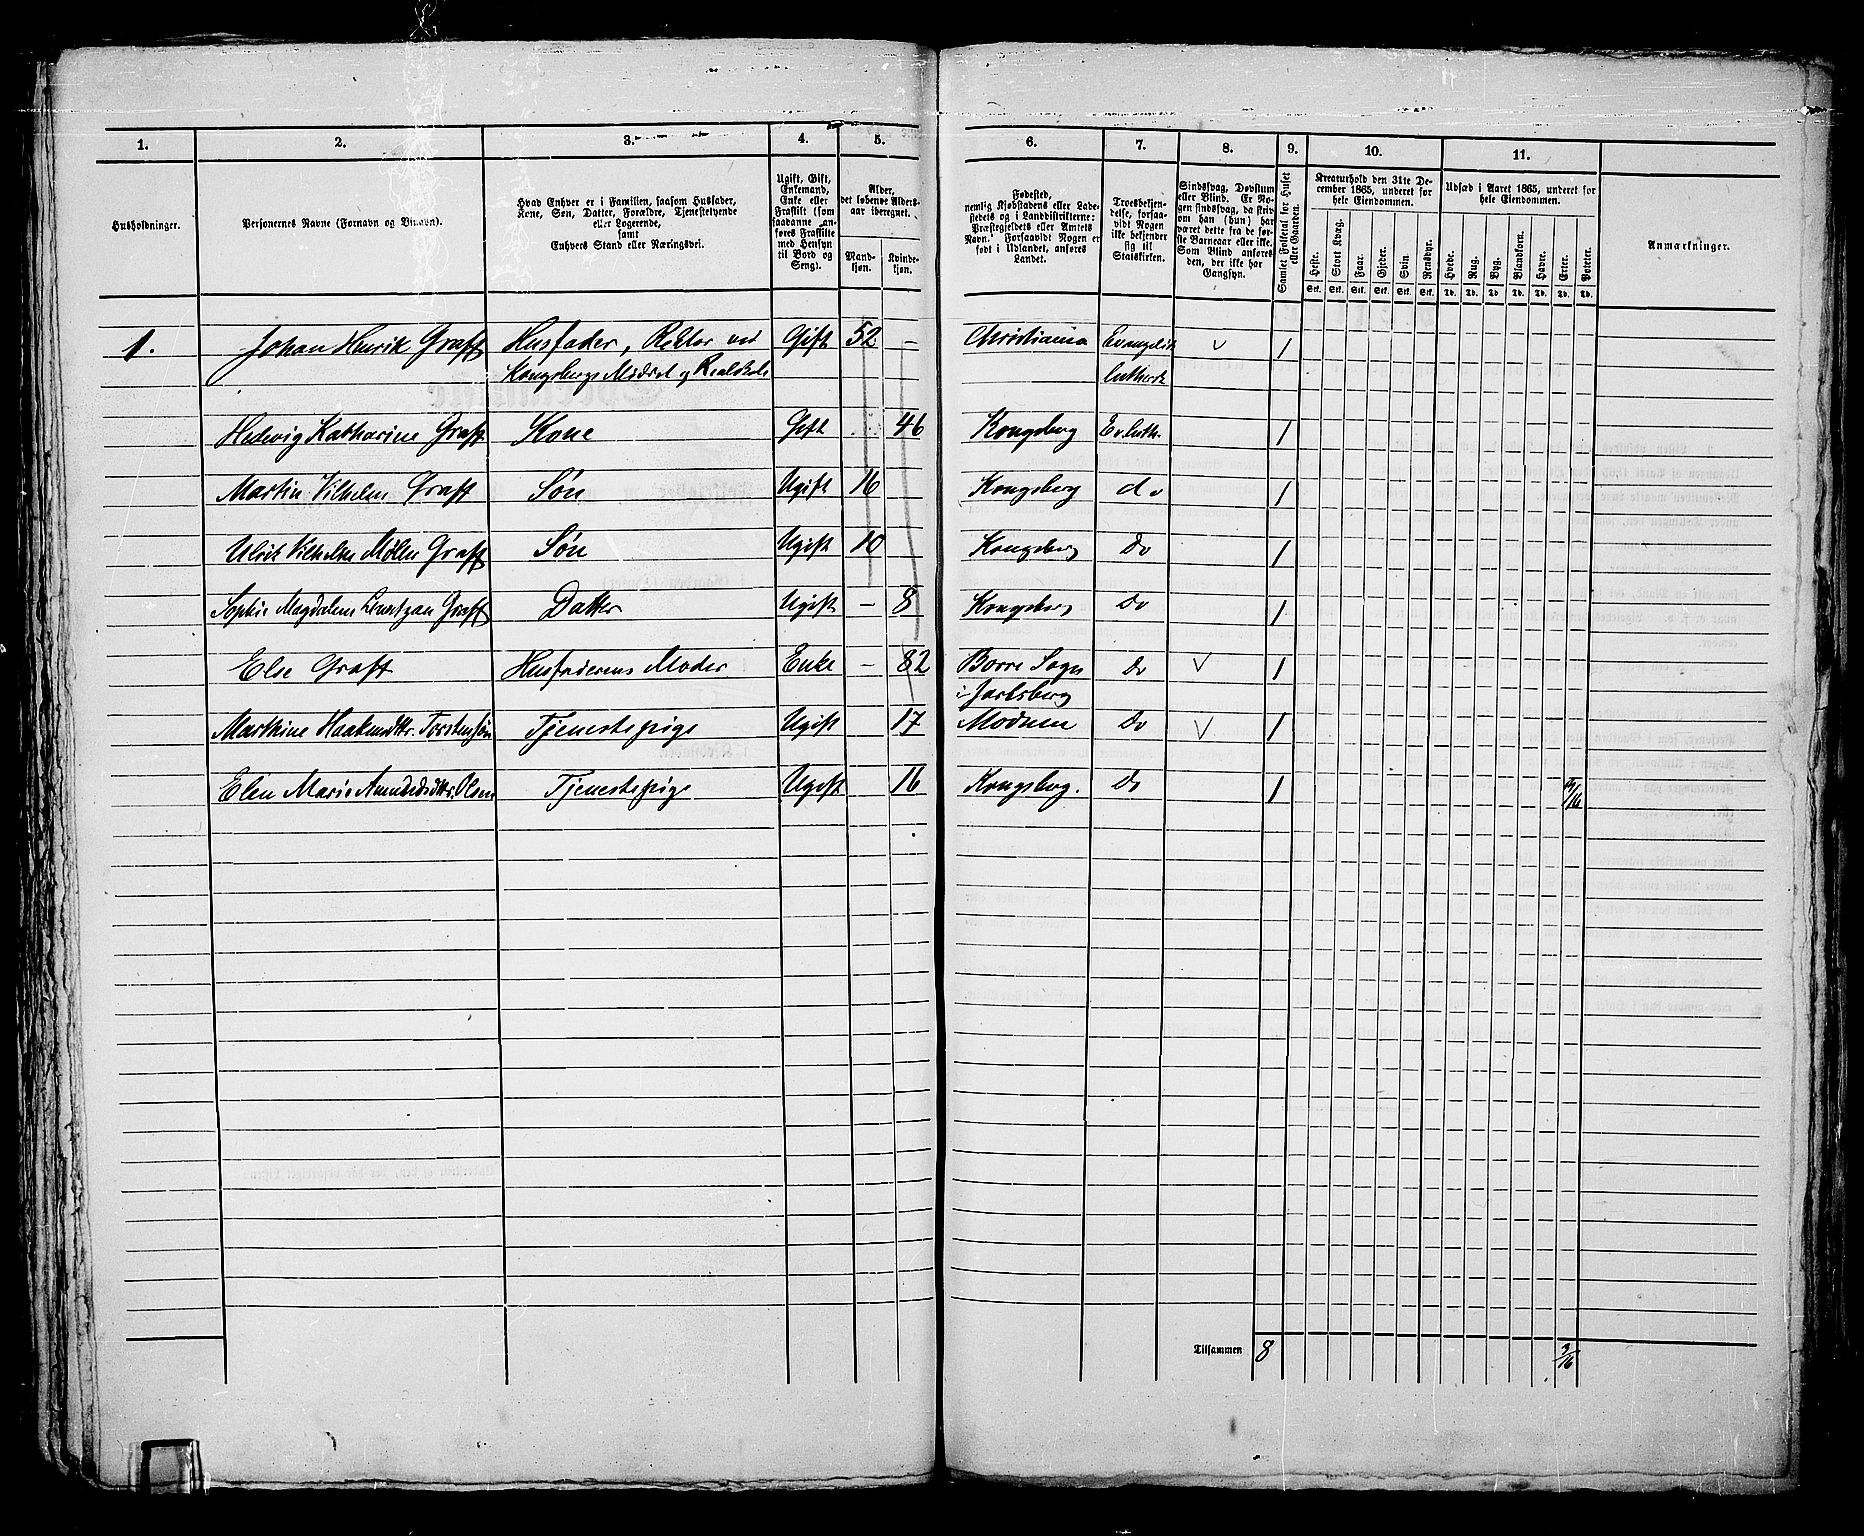 1. 2. 3. 4. 5. 6. 7. 8. 9. 10. 11.
Husholdninger.
Personernes Navne (Fornavn og Tilnavn).
Hvad Enhver er i Familien, saasom Husfader,
Kone, Søn, Datter, Forældre, Tjenestetyende
eller Logerende,
samt
Enhvers Stand eller Næringsvei.
Ugift, Gift,
Enkemand,
Enke eller
Fraskilt (som
saadanne an-
føres Fraskilte
med Hensyn
til Bord og
Seng).
Alder,
det løbende Alders-
aar iberegnet.
Mand-
kjøn.
Kvinde-
kjøn.
Fødested,
nemlig Kjøbstadens eller Lade-
stedets og i Landdistrikterne:
Præstegjeldets eller Amtets
Navn. Forsaavidt Nogen er
født i Udlandet, anføres
Landet.
Troesbekjen-
delse, forsaa-
vidt Nogen
ikke bekjender
sig til
Statskirken.
Sindssvag, Døvstum
eller Blind. Er No-
gen sindssvag, da skriv
om han (hun) har
været dette fra de før-
ste Barneaar eller ikke.
Som Blind anføres
den, der ikke har
Gangsyn.
Samlet Folketal for Huset
eller Gaarden.
Kreaturhold den 31te De-
cember 1865, underet for
hele Eiendommen.
Heste. Stort Kvæg. Faar. Gjeder. Svin. Rensdyr.
Stk. Stk. Stk. Stk. Stk. Stk.
Udsæd i Aaret 1865, underet for
hele Eiendommen.
Hvede. Rug. Byg. Blandkorn. Havre. Erter. Poteter.
Td. Td. Td. Td. Td. Td. Td.
Anmærkninger.
1. Johan Henrik Graff Husfader, Rektor ved Gift 52 – Christiania Evangelisk 1
Kongsbergs Middel og Realskole luthersk
Hedevig Katharine Graff Kone Gift 46 Kongsberg Ev. luth. 1
Martin Vilhelm Graff Søn Ugift 16 Kongsberg do 1
Ulrik Vilhelm Møller Graff Søn Ugift 10 Kongsberg Do 1
Sophie Magdalena Graff Datter Ugift – 8 Kongsberg Do 1
Else Graff Husfaderens Moder Enke – 82 Borre Sogn Do 1
i Jarlsberg
Marthine Haakensdttr. Torstensøn Tjenestepige Ugift 17 Modum Do 1
Elen Marie Amundsdttr. Olsen Tjenestepige Ugift 16 Kongsberg. Do 1
Tilsammen 8 3/16